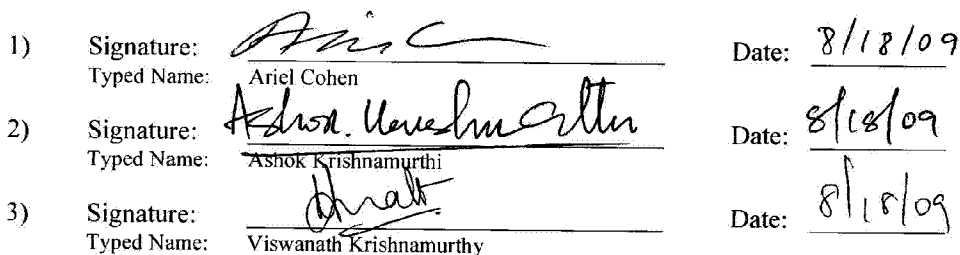 1) Signature: Date: 8/18/09
Typed Name: Ariel Cohen
2) Signature: Ashok. Date: 8/18/09
Typed Name: Ashok Krishnamurthi
3) Signature: Date: 8/18/09
Typed Name: Viswanath Krishnamurthy